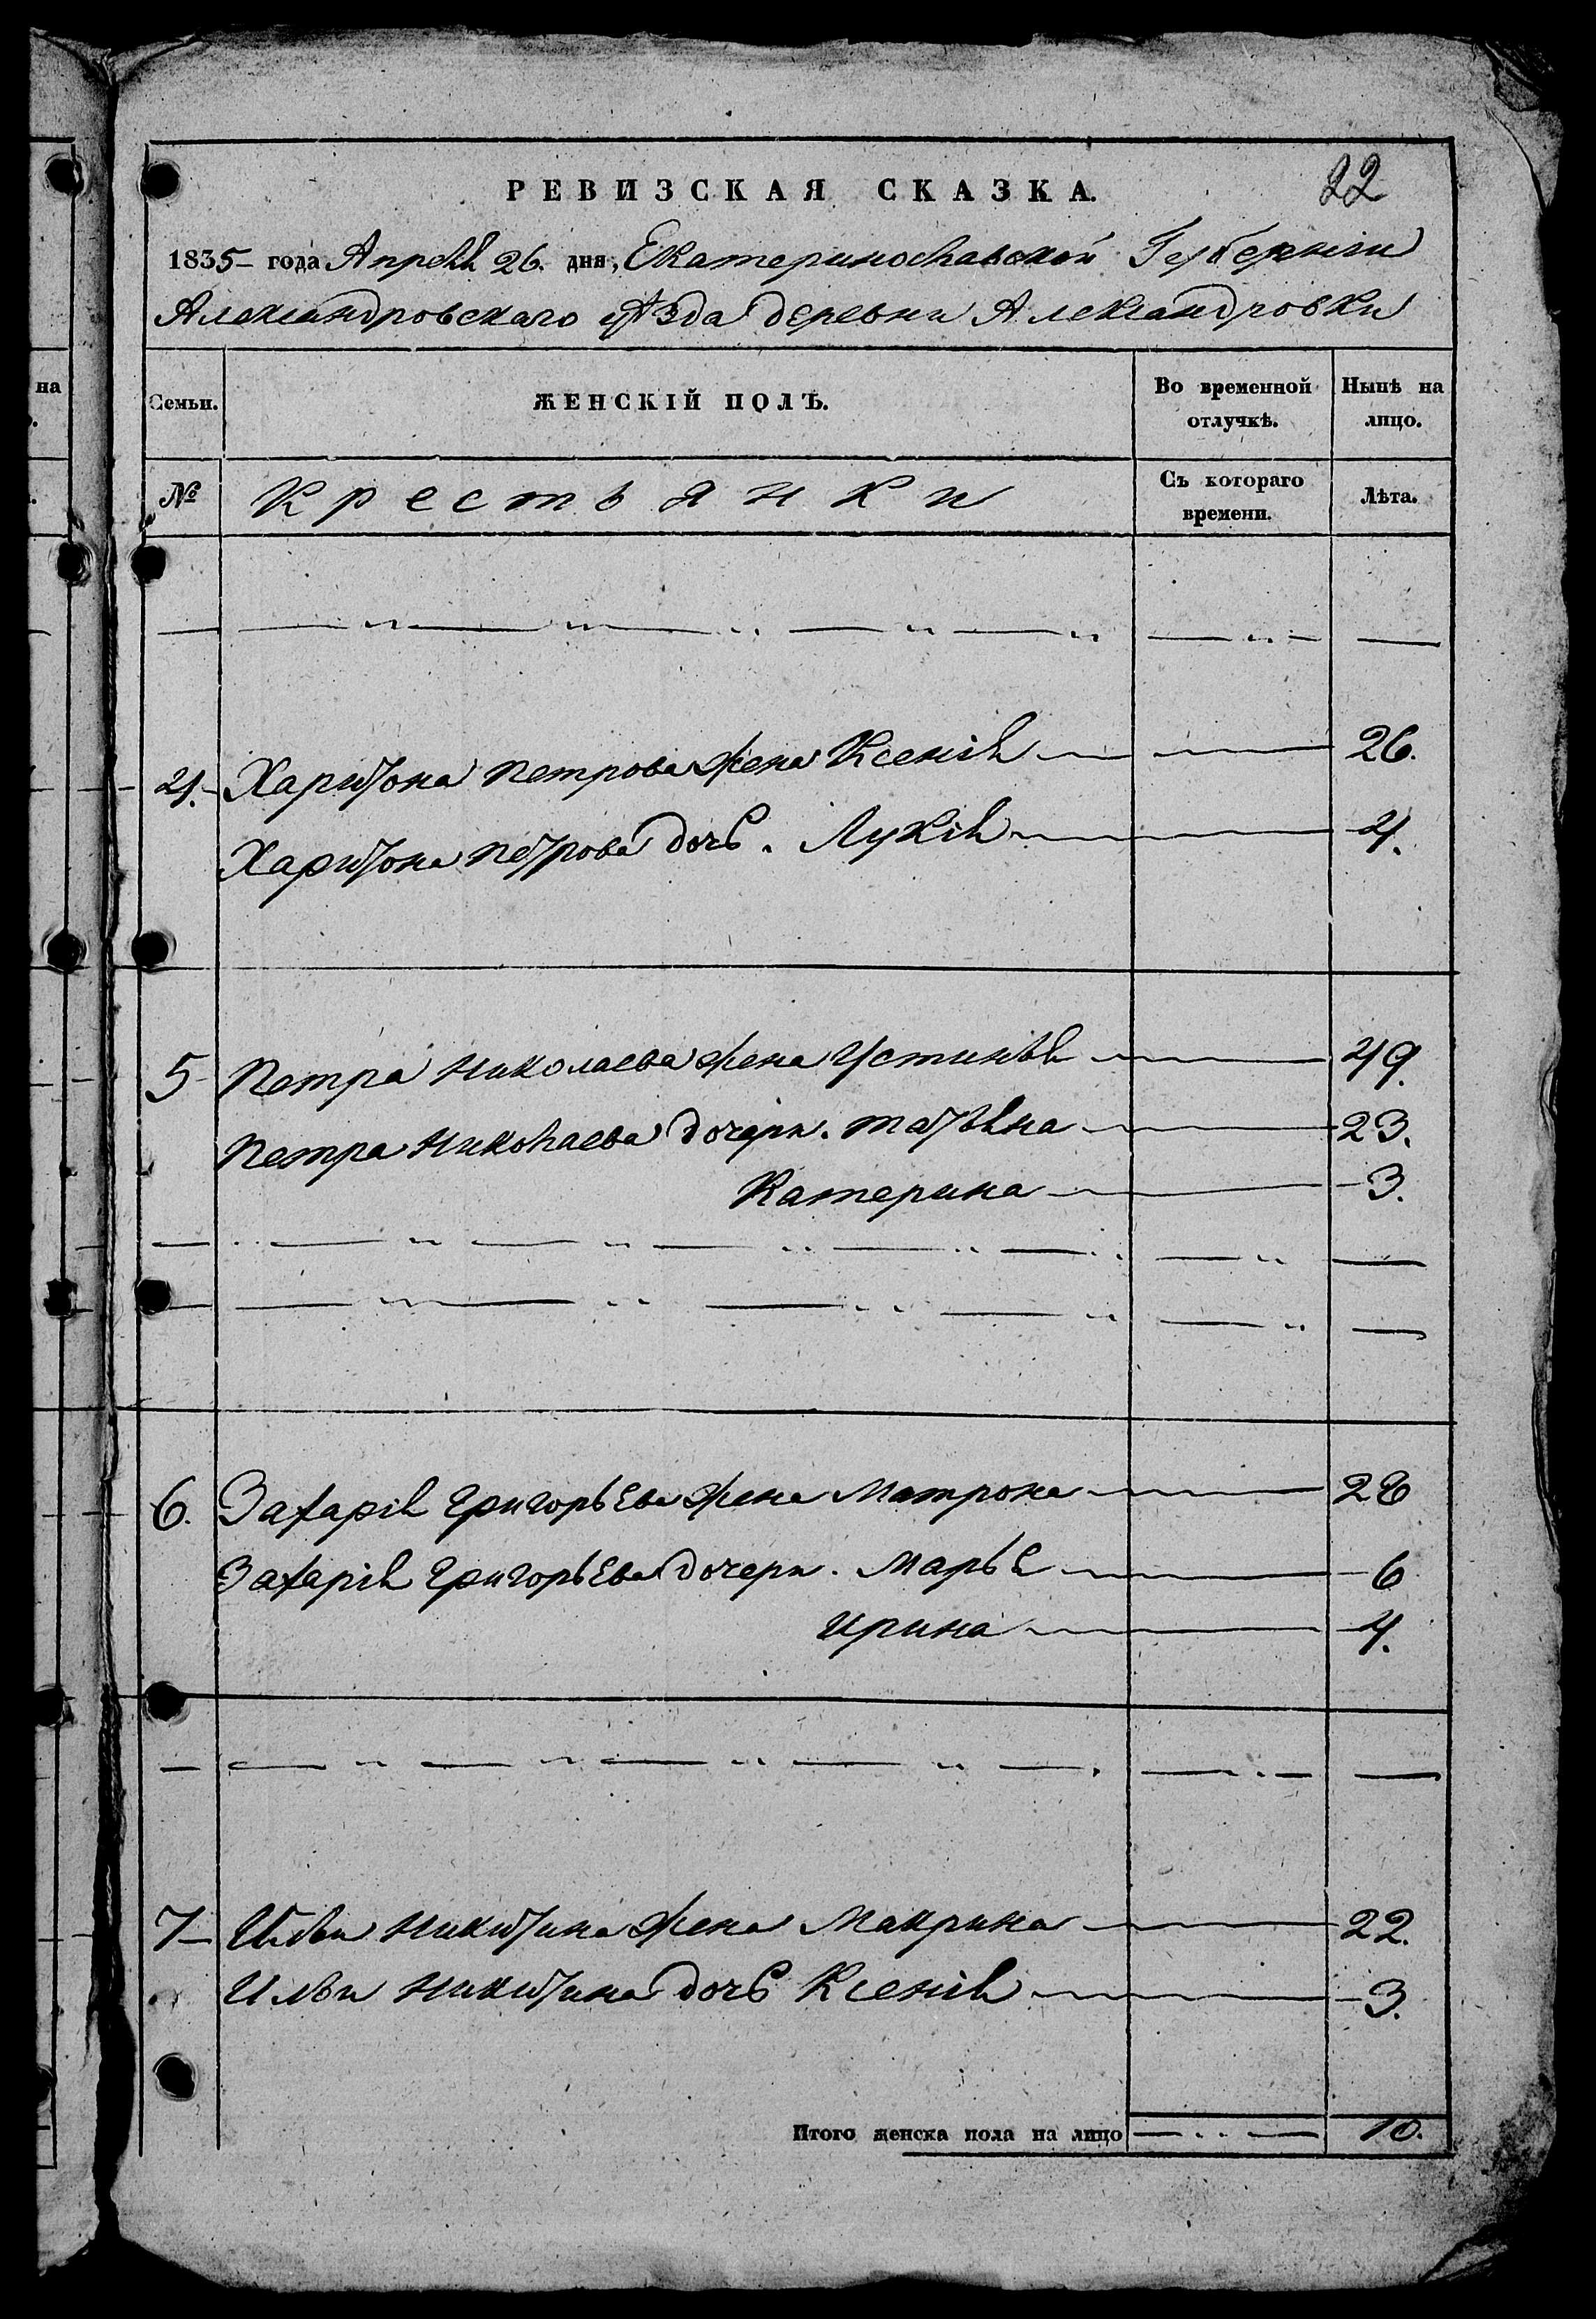 на
РЕВИЗСКАЯ СКАЗКА.
22
1835 года Апреля 26. дня, Екатеринославской Губерніи
Александровскаго уѣзда деревни Александровки
Семьи.
ЖЕНСКІЙ ПОЛЪ.
Во временной отлучкѣ.
Нынѣ на лицо.
№
Крестьянки
Съ котораго времени.
Лѣта.
4. Харитона Петрова жена Ксенія 26.
Харитона Петрова дочь. Лукія 4.
5 Петра Николаева жена Устинья 49.
Петра Николаева дочери. Татьяна 23.
Катерина 3.
6. Захарія Григорьева жена Матрона 28
Захарія Григорьева дочери. Марья 6
Ирина 4.
7 Ильи Никитина жена Макрина 22.
Ильи Никитина дочь Ксенія 3.
Итого женска пола на лицо 10.